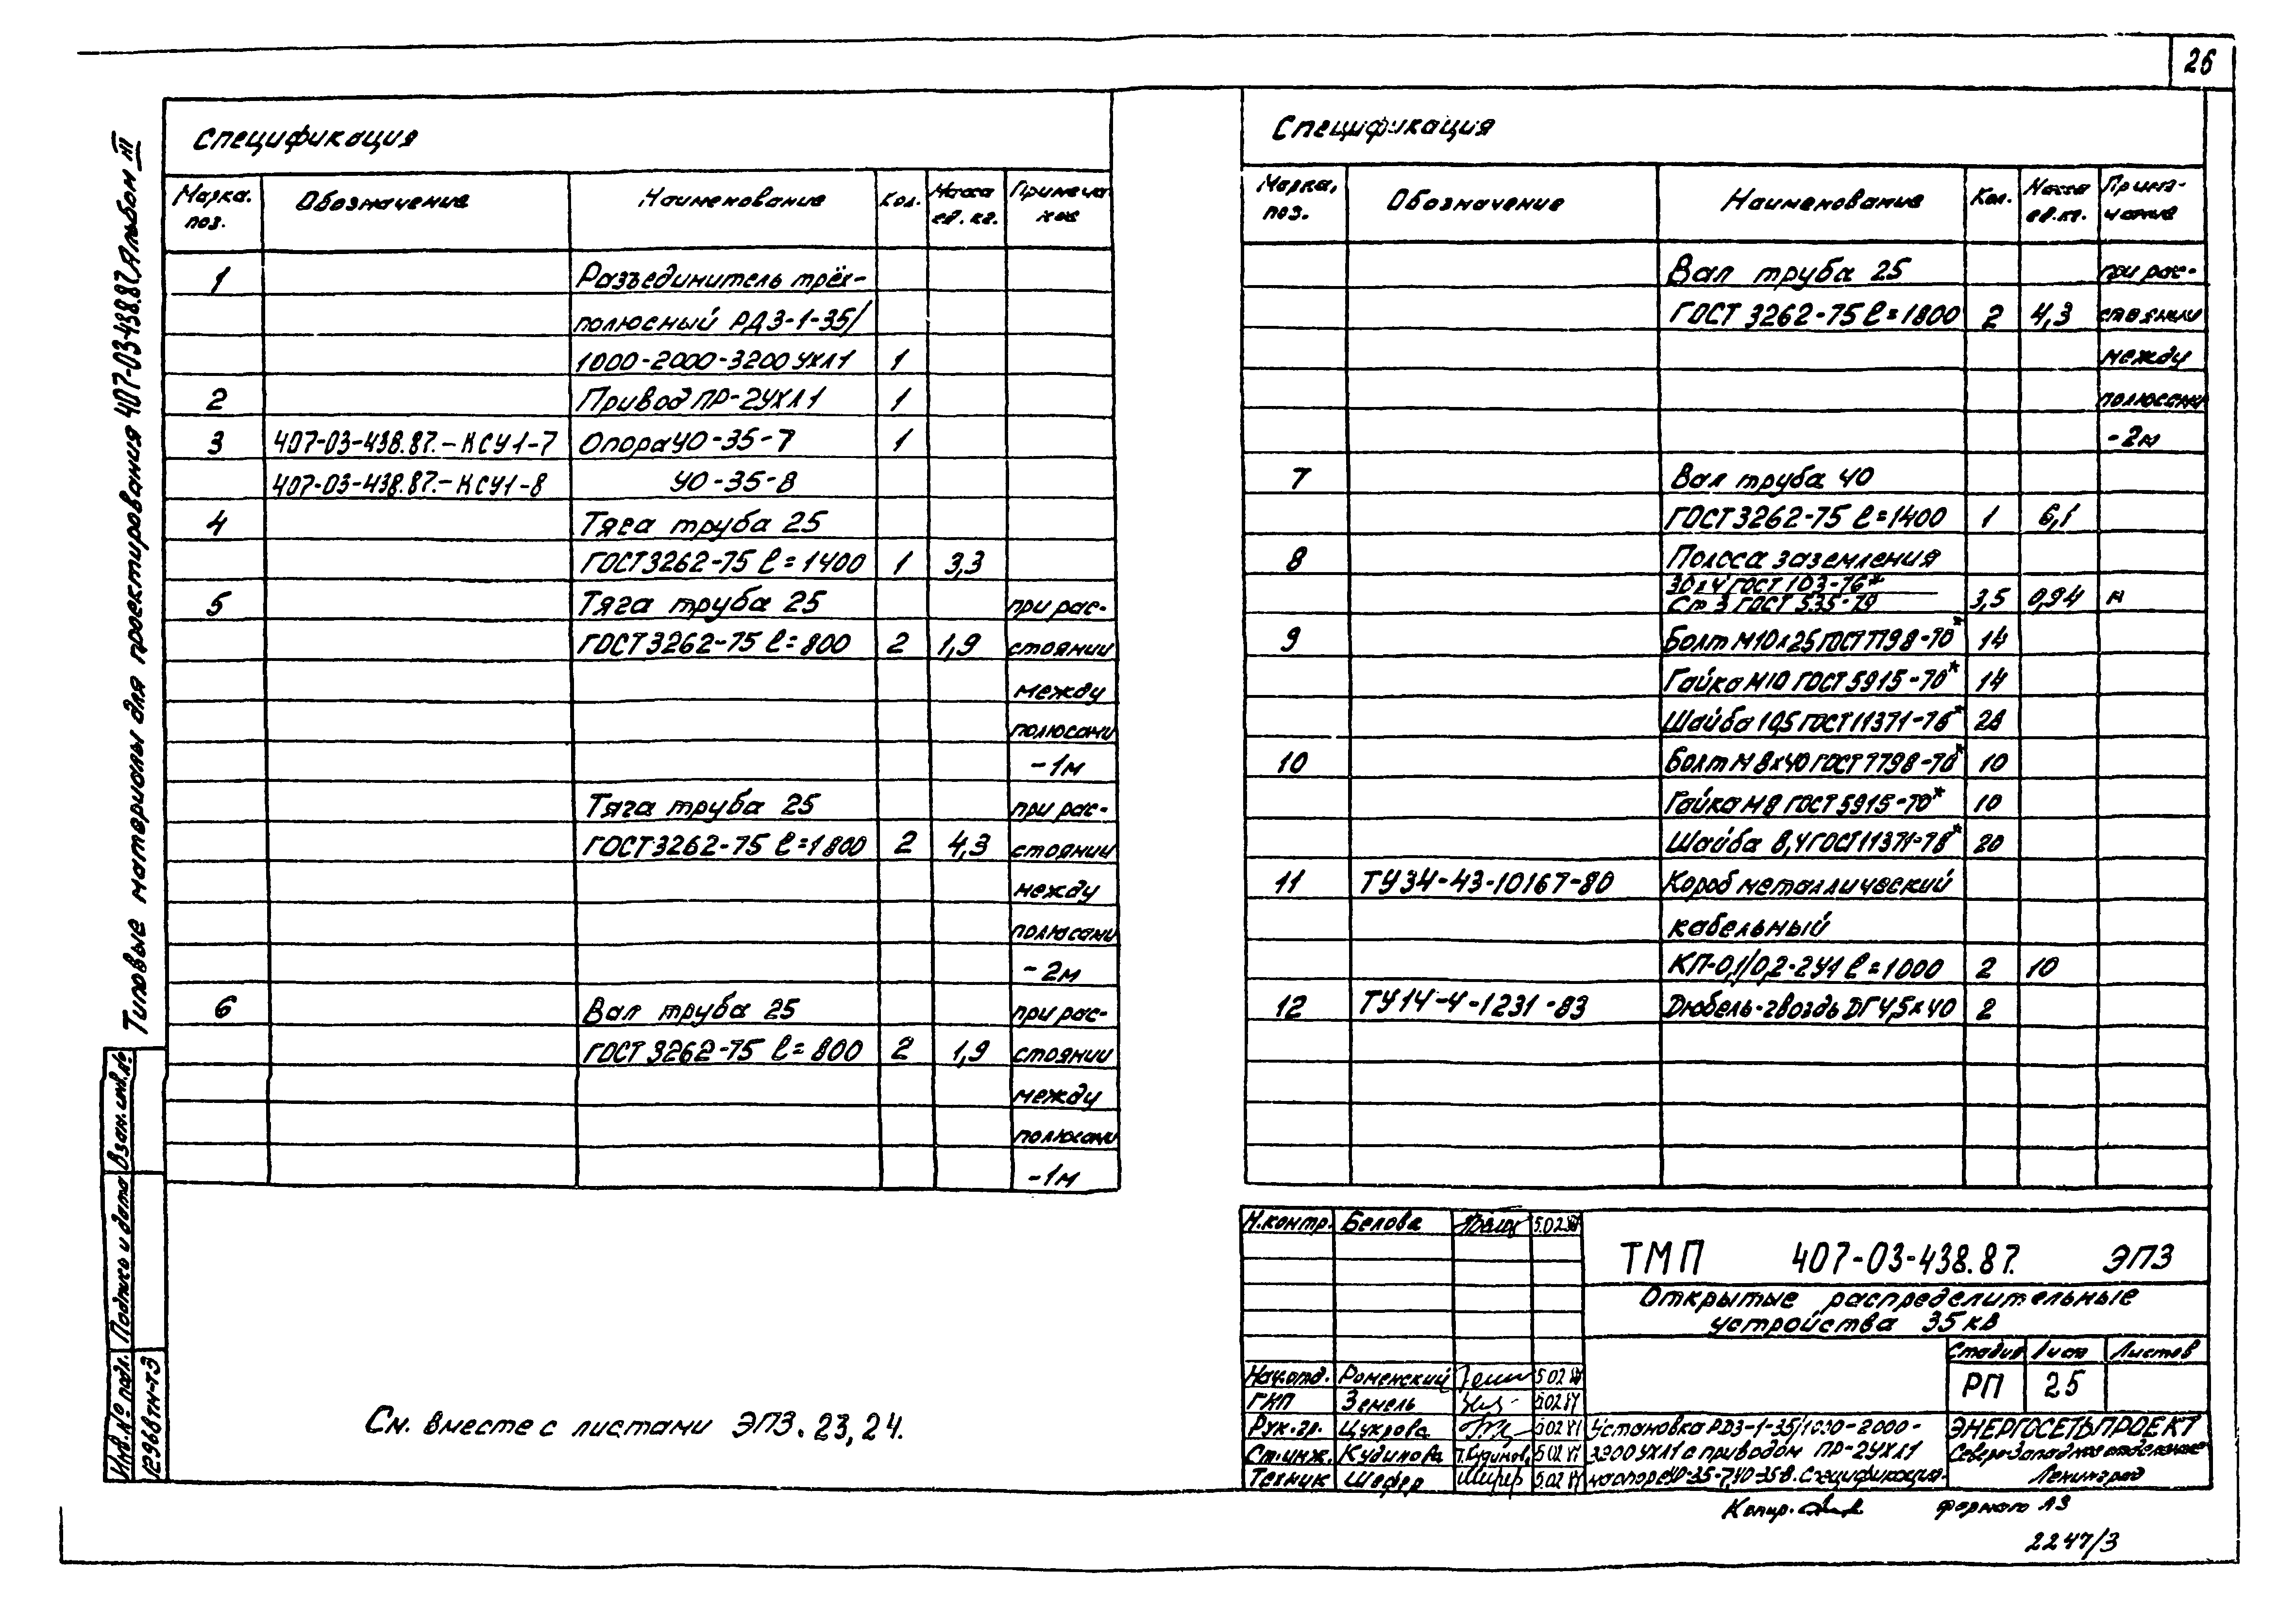 26
Типовые материалы для проектирования 407-03-438.87 Альбом III
Спецификация
Марка. поз. Обозначение Наименование Кол. Масса ед. кг. Примеча ние
1 Разъединитель трёх-
полюсный РДЗ-1-35/
1000-2000-3200 УХЛ1 1
2 Привод ПР-2УХЛ1 1
3 407-03-438.87.-КСУ1-7 Опора УО-35-7 1
407-03-438.87.-КСУ1-8 УО-35-8
4 Тяга труба 25
ГОСТ 3262-75 ℓ=1400 1 3,3
5 Тяга труба 25 при рас-
ГОСТ 3262-75 ℓ=800 2 1,9 стоянии
между
полюсами
-1м
Тяга труба 25 при рас-
ГОСТ 3262-75 ℓ=1800 2 4,3 стоянии
между
полюсами
-2м
6 Вал труба 25 при рас-
ГОСТ 3262-75 ℓ=800 2 1,9 стоянии
между
полюсами
-1м
Спецификация
Марка, поз. Обозначение Наименование Кол. Масса ед.кг. Приме- чание
Вал труба 25 при рас-
ГОСТ 3262-75 ℓ=1800 2 4,3 стоянии
между
полюсами
-2м
7 Вал труба 40
ГОСТ 3262-75 ℓ=1400 1 6,1
8 Полоса заземления
30х4 ГОСТ 103-76*
Ст 3 ГОСТ 535-79 3,5 0,94 м
9 Болт М10х25 ГОСТ 7798-70* 14
Гайка М10 ГОСТ 5915-70* 14
Шайба 10,5 ГОСТ 11371-78* 28
10 Болт М8х40 ГОСТ 7798-70* 10
Гайка М8 ГОСТ 5915-70* 10
Шайба 8,4 ГОСТ 11371-78* 20
11 ТУ34-43-10167-80 Короб металлический
кабельный
КП-0,1/0,2-2У1 ℓ=1000 2 10
12 ТУ14-4-1231-83 Дюбель-гвоздь ДГ4,5х40 2
См. вместе с листами ЭП3.23,24.
Взам.инв.№
Подпись и дата
Инв.№ подл. 12968тм-т3
Н.контр. Белова 5.02.87
ТМП 407-03-438.87. ЭП3
Открытые распределительные
устройства 35 кВ
Стадия Лист Листов
РП 25
Нач.отд. Роменский 5.02.87
ГИП Земель 5.02.87
Рук.гр. Цукрова 5.02.87
Ст.инж. Кудинова Т.Кудинов 5.02.87
Техник Шефер Шефер 5.02.87
Установка РДЗ-1-35/1000-2000-
3200 УХЛ1 с приводом ПР-2УХЛ1
на опоре УО-35-7, УО-35-8. Спецификация.
ЭНЕРГОСЕТЬПРОЕКТ
Северо-Западное отделение
Ленинград
Копир. формат А3
2247/3